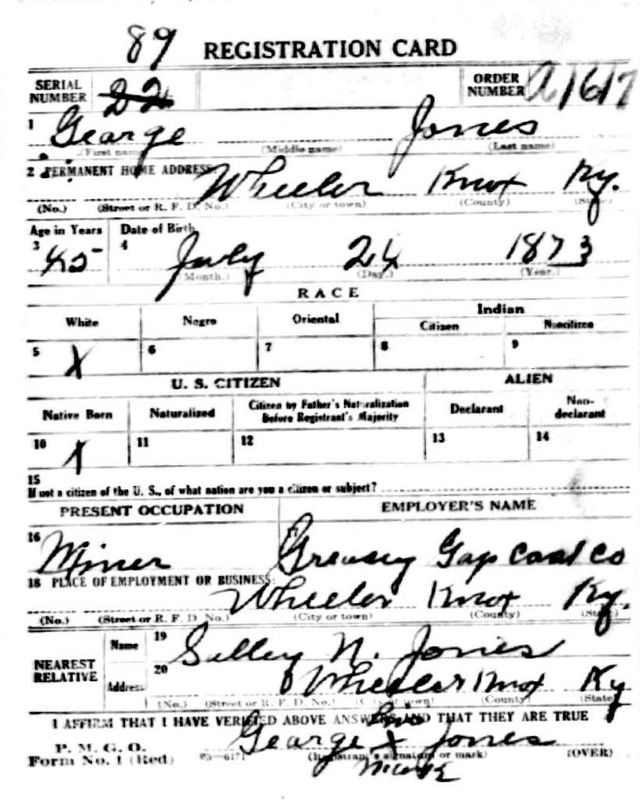 89 REGISTRATION CARD
SERIAL NUMBER 22 ORDER NUMBER A1617
1 George Jones
(First name) (Middle name) (Last name)
2 PERMANENT HOME ADDRESS: Wheeler Knox Ky.
(No.) (Street or R. F. D. No.) (City or town) (County) (State)
Age in Years Date of Birth
3 45 4 July 24 1873
(Month.) (Day.) (Year.)
RACE
White Negro Oriental Indian
Citizen Noncitizen
5 X 6 7 8 9
U. S. CITIZEN ALIEN
Native Born Naturalized Citizen by Father's Naturalization Before Registrant's Majority Declarant Non-declarant
10 X 11 12 13 14
15
If not a citizen of the U. S., of what nation are you a citizen or subject?
PRESENT OCCUPATION EMPLOYER'S NAME
16 Miner Greasy Gap Coal Co
18 PLACE OF EMPLOYMENT OR BUSINESS:
Wheeler Knox Ky.
(No.) (Street or R. F. D. No.) (City or town) (County) (State)
NEAREST RELATIVE Name 19 Silley N. Jones
Address 20 Wheeler Knox Ky
(No.) (Street or R. F. D. No.) (City or town) (County) (State)
I AFFIRM THAT I HAVE VERIFIED ABOVE ANSWERS AND THAT THEY ARE TRUE
his
George X Jones
P. M. G. O.
Form No. 1 (Red) 03-6171 (Registrant's signature or mark) (OVER)
mark